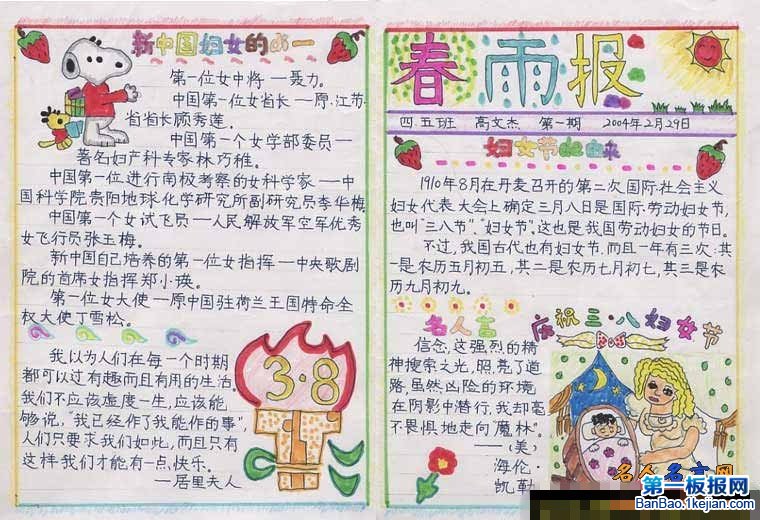 新中国妇女的第一
第一位女中将—聂力。
中国第一位女省长—原·江苏
省省长顾秀莲。
中国第一个女学部委员—
著名妇产科专家林巧稚。
中国第一位进行南极考察的女科学家—中
国科学院贵阳地球化学研究所副研究员李华梅
中国第一个女试飞员—人民解放军空军优秀
女飞行员张玉梅。
新中国自己培养的第一位女指挥—中央歌剧
院的首席女指挥郑小瑛。
第一位女大使—原中国驻荷兰王国特命全
权大使丁雪松。
我以为人们在每一个时期
都可以过有趣而且有用的生活。
我们不应该虚度一生,应该能
够说,“我已经作了我能作的事”,
人们只要求我们如此,而且只有
这样我们才能有一点快乐。
—居里夫人
3·8
春雨报
四.五班 高文杰 第一期 2004年2月29日
妇女节的由来
1910年8月在丹麦召开的第二次国际社会主义
妇女代表大会上确定三月八日是国际劳动妇女节,
也叫“三八节”、“妇女节”。这也是我国劳动妇女的节日。
不过,我国古代也有妇女节.而且一年有三次.其
一是农历五月初五,其二是农历七月初七,其三是农
历九月初九。
名人言
信念,这强烈的精
神搜索之光,照亮了道
路,虽然凶险的环境
在阴影中潜行,我却毫
不畏惧地走向“魔林”。
——(美)
海伦·
凯勒
庆祝三·八妇女节
名人名言网
第一板报网
BanBao.1kejian.com